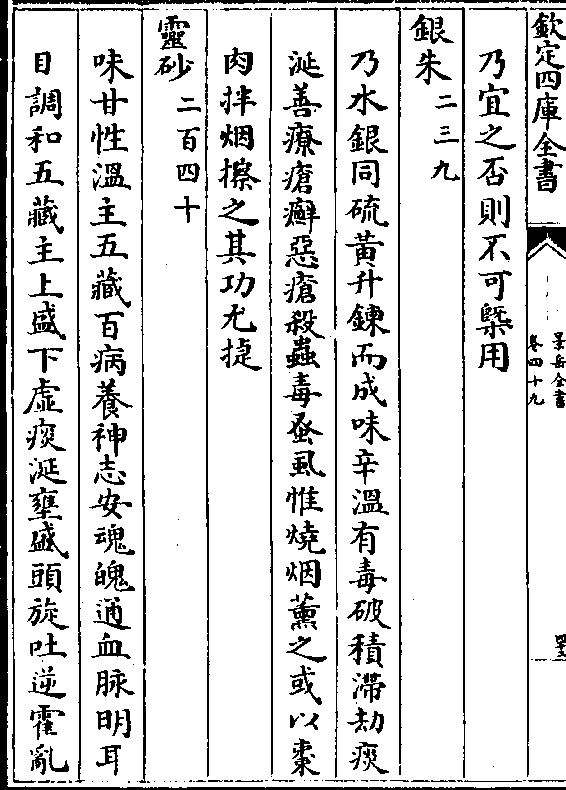 欽定四庫全書
景岳全書
卷四十九
乃宜之否則不可槩用
銀朱二三九
乃水銀同硫黄升鍊而成味辛溫有毒破積滯劫痰
涎善療瘡癬惡瘡殺蟲毒蚤虱惟燒烟薰之或以棗
肉拌烟擦之其功尤捷
靈砂二百四十
味甘性溫主五藏百病養神志安魂魄通血脉明耳
目調和五藏主上盛下虛痰涎壅盛頭旋吐逆霍亂